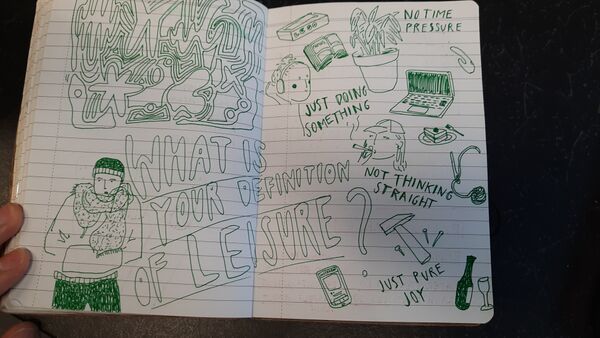 NO TIME
PRESSURE
JUST DOING
SOMETHING
WHAT IS
YOUR DEFINITION
OF LEISURE?
NOT THINKING
STRAIGHT
JUST PURE
JOY